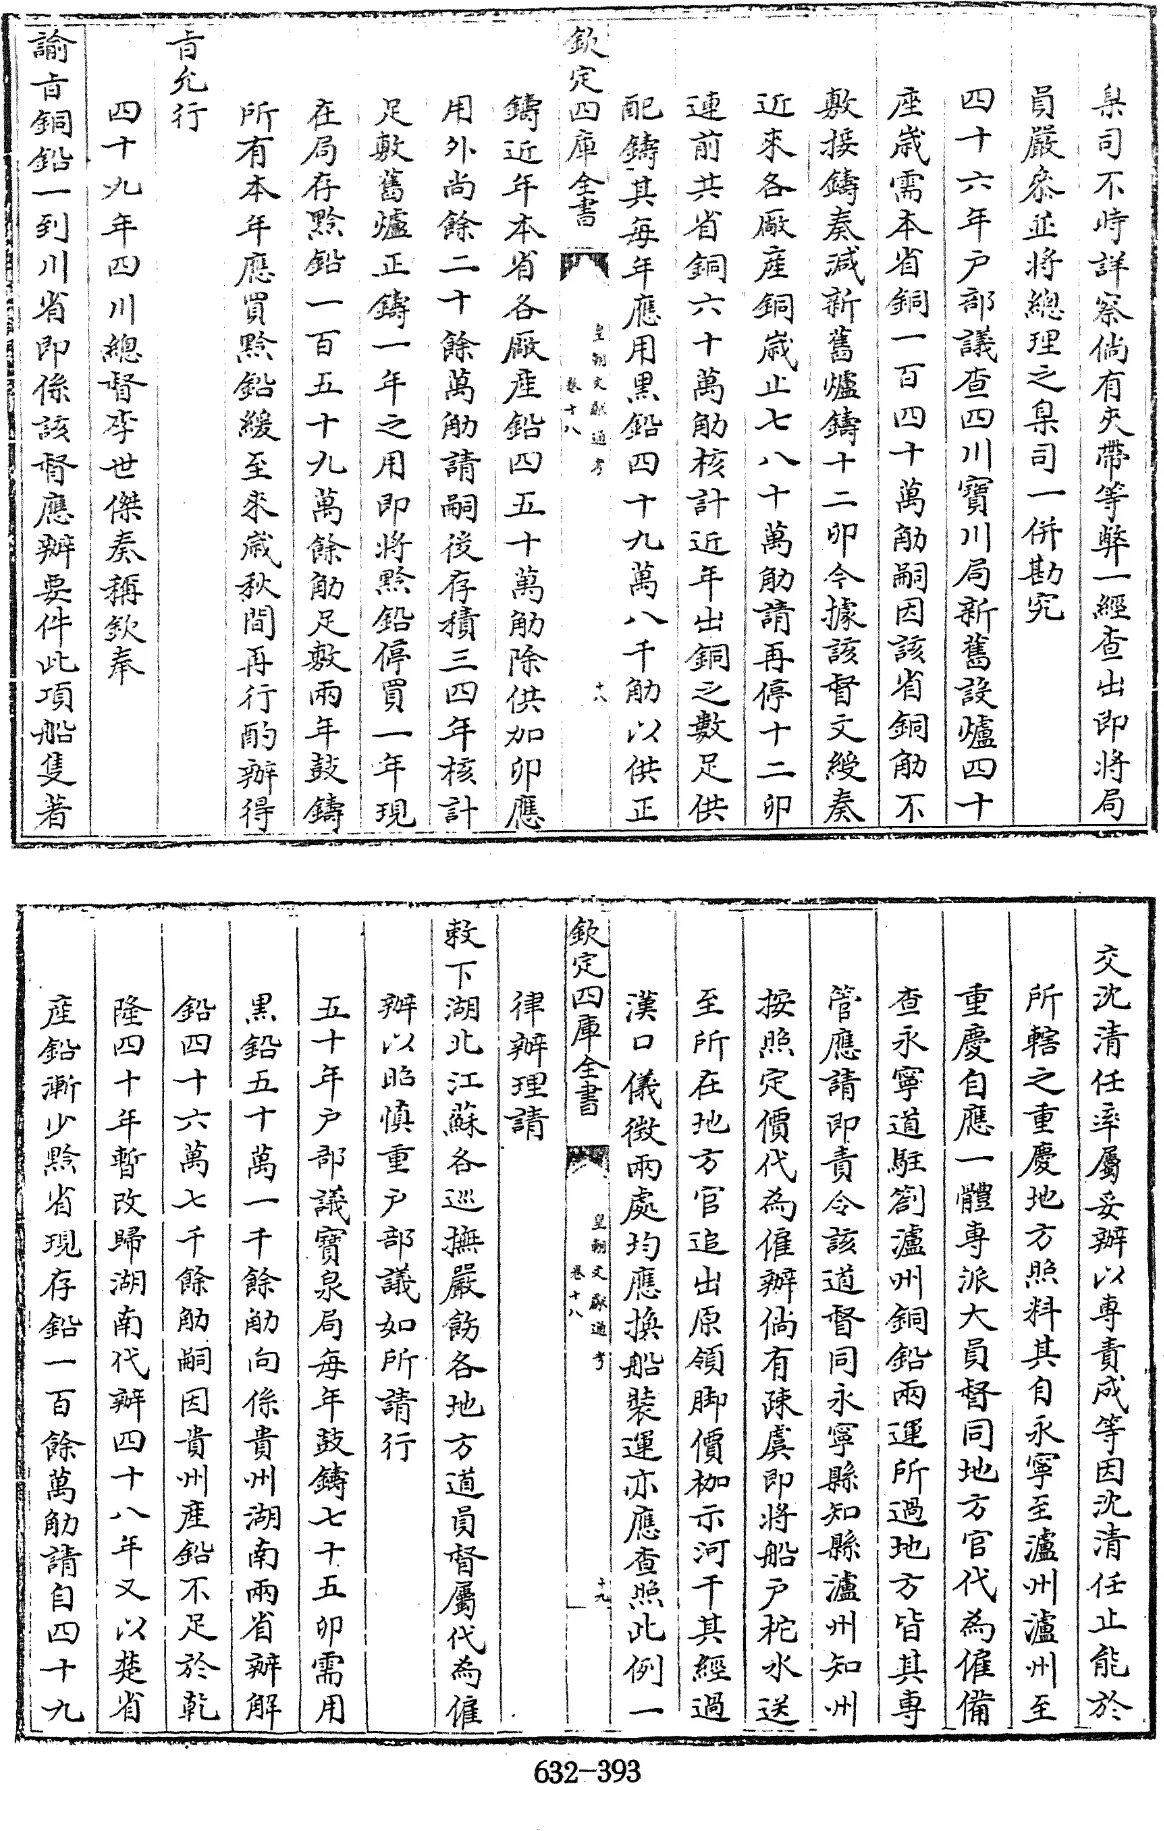 臬司不時詳察倘有夾帶等弊一經查出即將局
員嚴叅並將總理之臬司一併勘究
四十六年戸部議查四川寶川局新舊設爐四十
座嵗需本省銅一百四十萬觔嗣因該省銅觔不
敷接鑄奏減新舊爐鑄十二卯今據該督文綬奏
近來各厰産銅嵗止七八十萬觔請再停十二卯
連前共省銅六十萬觔核計近年出銅之數足供
配鑄其每年應用黒鉛四十九萬八千觔以供正
欽定四庫全書
皇朝文獻通考
卷十八
十八
鑄近年本省各厰産鉛四五十萬觔除供加卯應
用外尚餘二十餘萬觔請嗣後存積三四年核計
足敷舊爐正鑄一年之用即將黔鉛停買一年現
在局存黔鉛一百五十九萬餘觔足敷兩年鼓鑄
所有本年應買黔鉛緩至來嵗秋間再行酌辦得
㫖允行
四十九年四川總督李世傑奏稱欽奉
諭㫖銅鉛一到川省即係該督應辦要件此項船隻著
交沈清任率屬妥辦以專責成等因沈清任止能於
所轄之重慶地方照料其自永寧至瀘州瀘州至
重慶自應一體專派大員督同地方官代為僱備
查永寧道駐劄瀘州銅鉛兩運所過地方皆其專
管應請即責令該道督同永寧縣知縣瀘州知州
按照定價代為僱辦倘有疎虞即將船戸柁水送
至所在地方官追出原領脚價枷示河干其經過
漢口儀徴兩處均應換船裝運亦應查照此例一
欽定四庫全書
皇朝文獻通考
卷十八
十九
律辦理請
敕下湖北江蘇各巡撫嚴飭各地方道員督屬代為僱
辦以昭慎重戸部議如所請行
五十年戸部議寶泉局每年鼓鑄七十五卯需用
黒鉛五十萬一千餘觔向係貴州湖南兩省辦解
鉛四十六萬七千餘觔嗣因貴州産鉛不足於乾
隆四十年暫改歸湖南代辦四十八年又以楚省
産鉛漸少黔省現存鉛一百餘萬觔請自四十九
632-393